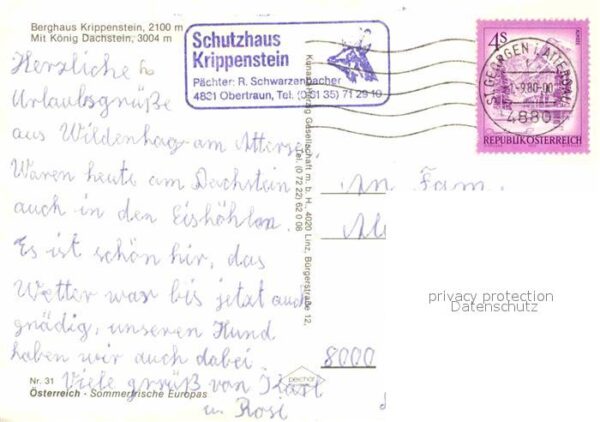 Berghaus Krippenstein, 2100 m
Mit König Dachstein, 3004 m
Schutzhaus
Krippenstein
Pächter: R. Schwarzenbacher
4831 Obertraun, Tel. (0 61 35) 71 29 10
4S
REPUBLIK ÖSTERREICH
ST. GEORGEN I. ATTERGAU
-9.80-00
4880
Herzliche
Urlaubsgrüße
aus Wildenhag am Attersee
Waren heute am Dachstein
auch in den Eishöhlen.
Es ist schön hir, das
Wetter war bis jetzt auch
gnädig, unseren Hund
haben wir auch dabei.
Viele grrüß von
u. Rosi
Nr. 31
Österreich - Sommerfrische Europas
Gesellschaft m. b. H., 4020 Linz, Bürgerstraße 12,
Tel. (0 72 22) 62 0 08
An Fam.
8000
privacy protection
Datenschutz